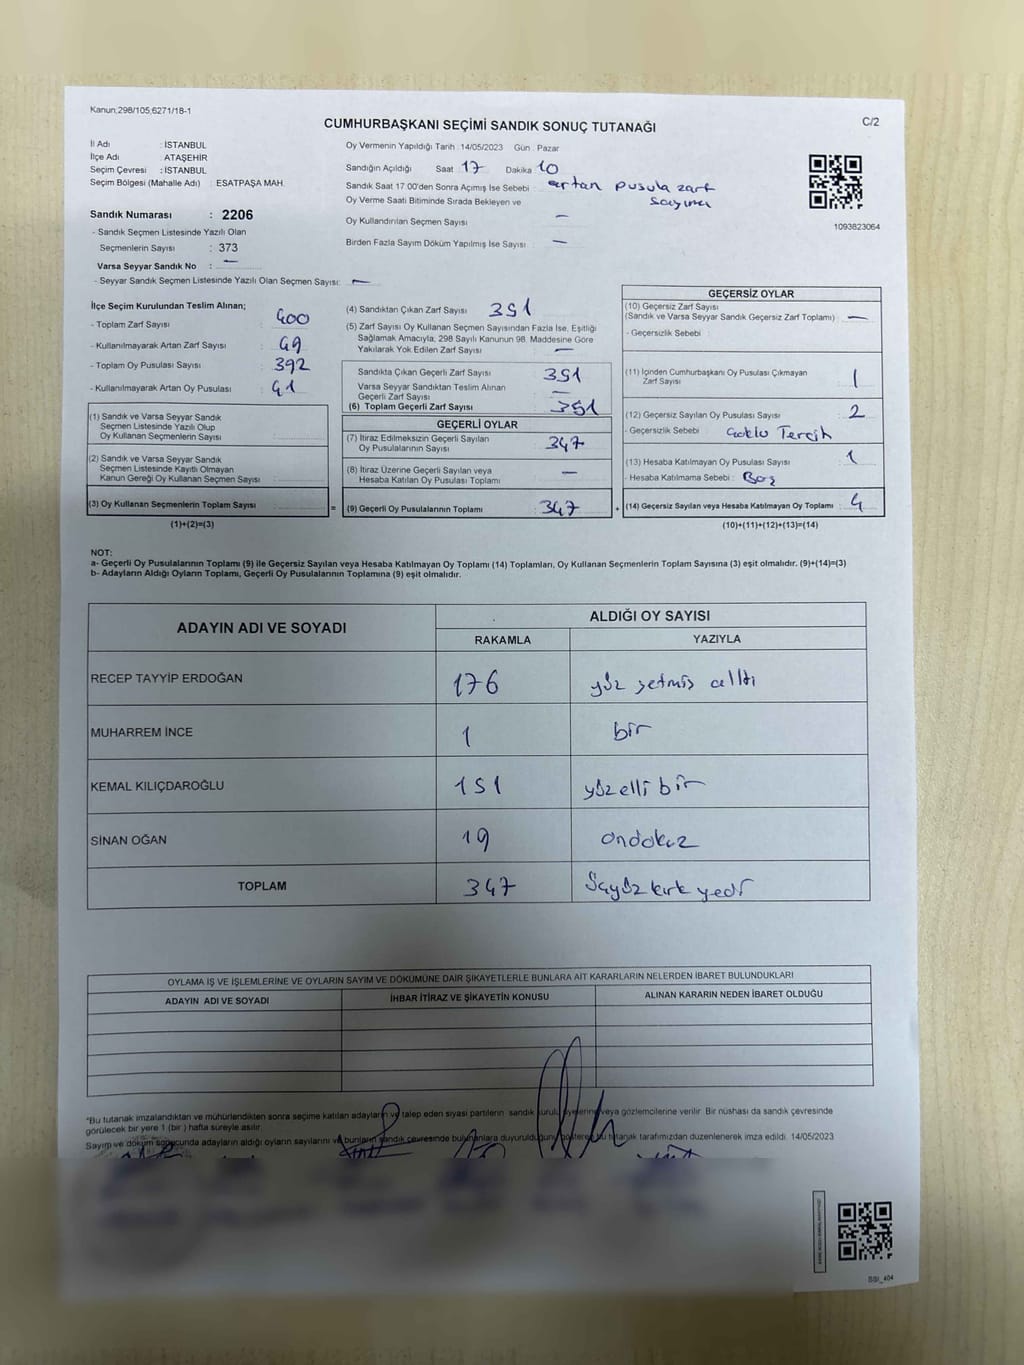 Kanun;298/105;6271/18-1
C/2
CUMHURBAŞKANI SEÇİMİ SANDIK SONUÇ TUTANAĞI
İl Adı : İSTANBUL
İlçe Adı : ATAŞEHİR
Seçim Çevresi : İSTANBUL
Seçim Bölgesi (Mahalle Adı) : ESATPAŞA MAH.
Sandık Numarası : 2206
- Sandık Seçmen Listesinde Yazılı Olan
Seçmenlerin Sayısı : 373
Varsa Seyyar Sandık No : —
- Seyyar Sandık Seçmen Listesinde Yazılı Olan Seçmen Sayısı: —
Oy Vermenin Yapıldığı Tarih : 14/05/2023 Gün : Pazar
Sandığın Açıldığı Saat 17 Dakika 10
Sandık Saat 17:00'den Sonra Açımış İse Sebebi : artan pusula zarf
Oy Verme Saati Bitiminde Sırada Bekleyen ve sayımı
Oy Kullandırılan Seçmen Sayısı : —
Birden Fazla Sayım Döküm Yapılmış İse Sayısı : —
1093823064
İlçe Seçim Kurulundan Teslim Alınan;
- Toplam Zarf Sayısı : 400
- Kullanılmayarak Artan Zarf Sayısı : 49
- Toplam Oy Pusulası Sayısı : 392
- Kullanılmayarak Artan Oy Pusulası : 41
(1) Sandık ve Varsa Seyyar Sandık
Seçmen Listesinde Yazılı Olup
Oy Kullanan Seçmenlerin Sayısı :
(2) Sandık ve Varsa Seyyar Sandık
Seçmen Listesinde Kayıtlı Olmayan
Kanun Gereği Oy Kullanan Seçmen Sayısı :
(3) Oy Kullanan Seçmenlerin Toplam Sayısı :
(1)+(2)=(3)
(4) Sandıktan Çıkan Zarf Sayısı : 351
(5) Zarf Sayısı Oy Kullanan Seçmen Sayısından Fazla İse, Eşitliği
Sağlamak Amacıyla; 298 Sayılı Kanunun 98. Maddesine Göre
Yakılarak Yok Edilen Zarf Sayısı : —
Sandıkta Çıkan Geçerli Zarf Sayısı : 351
Varsa Seyyar Sandıktan Teslim Alınan
Geçerli Zarf Sayısı : —
(6) Toplam Geçerli Zarf Sayısı : 351
GEÇERLİ OYLAR
(7) İtiraz Edilmeksizin Geçerli Sayılan
Oy Pusulalarının Sayısı : 347
(8) İtiraz Üzerine Geçerli Sayılan veya
Hesaba Katılan Oy Pusulası Toplamı : —
= (9) Geçerli Oy Pusulalarının Toplamı : 347 +
GEÇERSİZ OYLAR
(10) Geçersiz Zarf Sayısı
(Sandık ve Varsa Seyyar Sandık Geçersiz Zarf Toplamı) : —
- Geçersizlik Sebebi :
(11) İçinden Cumhurbaşkanı Oy Pusulası Çıkmayan
Zarf Sayısı : 1
(12) Geçersiz Sayılan Oy Pusulası Sayısı : 2
- Geçersizlik Sebebi : Çoklu Tercih
(13) Hesaba Katılmayan Oy Pusulası Sayısı : 1
- Hesaba Katılmama Sebebi : Boş
(14) Geçersiz Sayılan veya Hesaba Katılmayan Oy Toplamı : 4
(10)+(11)+(12)+(13)=(14)
NOT:
a- Geçerli Oy Pusulalarının Toplamı (9) ile Geçersiz Sayılan veya Hesaba Katılmayan Oy Toplamı (14) Toplamları, Oy Kullanan Seçmenlerin Toplam Sayısına (3) eşit olmalıdır. (9)+(14)=(3)
b- Adayların Aldığı Oyların Toplamı, Geçerli Oy Pusulalarının Toplamına (9) eşit olmalıdır.
ADAYIN ADI VE SOYADI
ALDIĞI OY SAYISI
RAKAMLA YAZIYLA
RECEP TAYYİP ERDOĞAN 176 yüz yetmiş altı
MUHARREM İNCE 1 bir
KEMAL KILIÇDAROĞLU 151 yüzelli bir
SİNAN OĞAN 19 ondokuz
TOPLAM 347 üçyüz kırk yedi
OYLAMA İŞ VE İŞLEMLERİNE VE OYLARIN SAYIM VE DÖKÜMÜNE DAİR ŞİKAYETLERLE BUNLARA AİT KARARLARIN NELERDEN İBARET BULUNDUKLARI
ADAYIN ADI VE SOYADI İHBAR İTİRAZ VE ŞİKAYETİN KONUSU ALINAN KARARIN NEDEN İBARET OLDUĞU
*Bu tutanak imzalandıktan ve mühürlendikten sonra seçime katılan adayların ve talep eden siyasi partilerin sandık kurulu üyelerine veya gözlemcilerine verilir. Bir nüshası da sandık çevresinde
görülecek bir yere 1 (bir) hafta süreyle asılır.
Sayım ve döküm sonucunda adayların aldığı oyların sayılarını ve bunların sandık çevresinde bulunanlara duyurulduğunu gösteren bu tutanak tarafımızdan düzenlenerek imza edildi. 14/05/2023
BSI_404